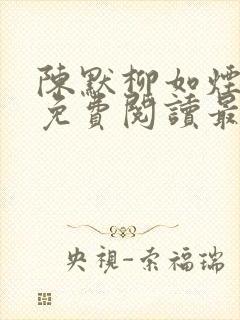 陳默柳如煙
免費閱讀最
央視-索福瑞